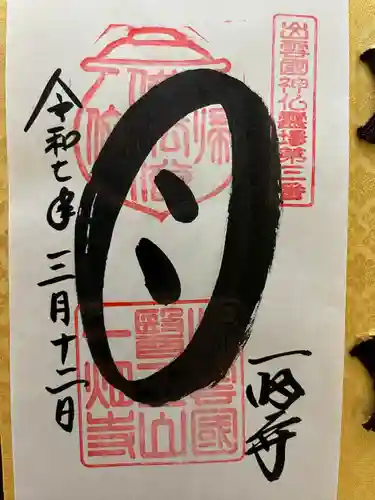 出雲國神仏霊場第三番
一畑寺
出雲國
醫王山
一畑寺
令和七年 三月十二日